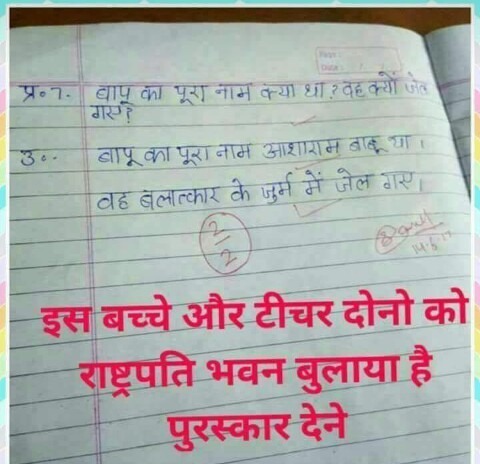 प्र०7. बापू का पूरा नाम क्या था? वह क्यों जेल
गए?
उ०. बापू का पूरा नाम आशाराम बापू था।
वह बलात्कार के जुर्म में जेल गए।
2/2
इस बच्चे और टीचर दोनो को
राष्ट्रपति भवन बुलाया है
पुरस्कार देने